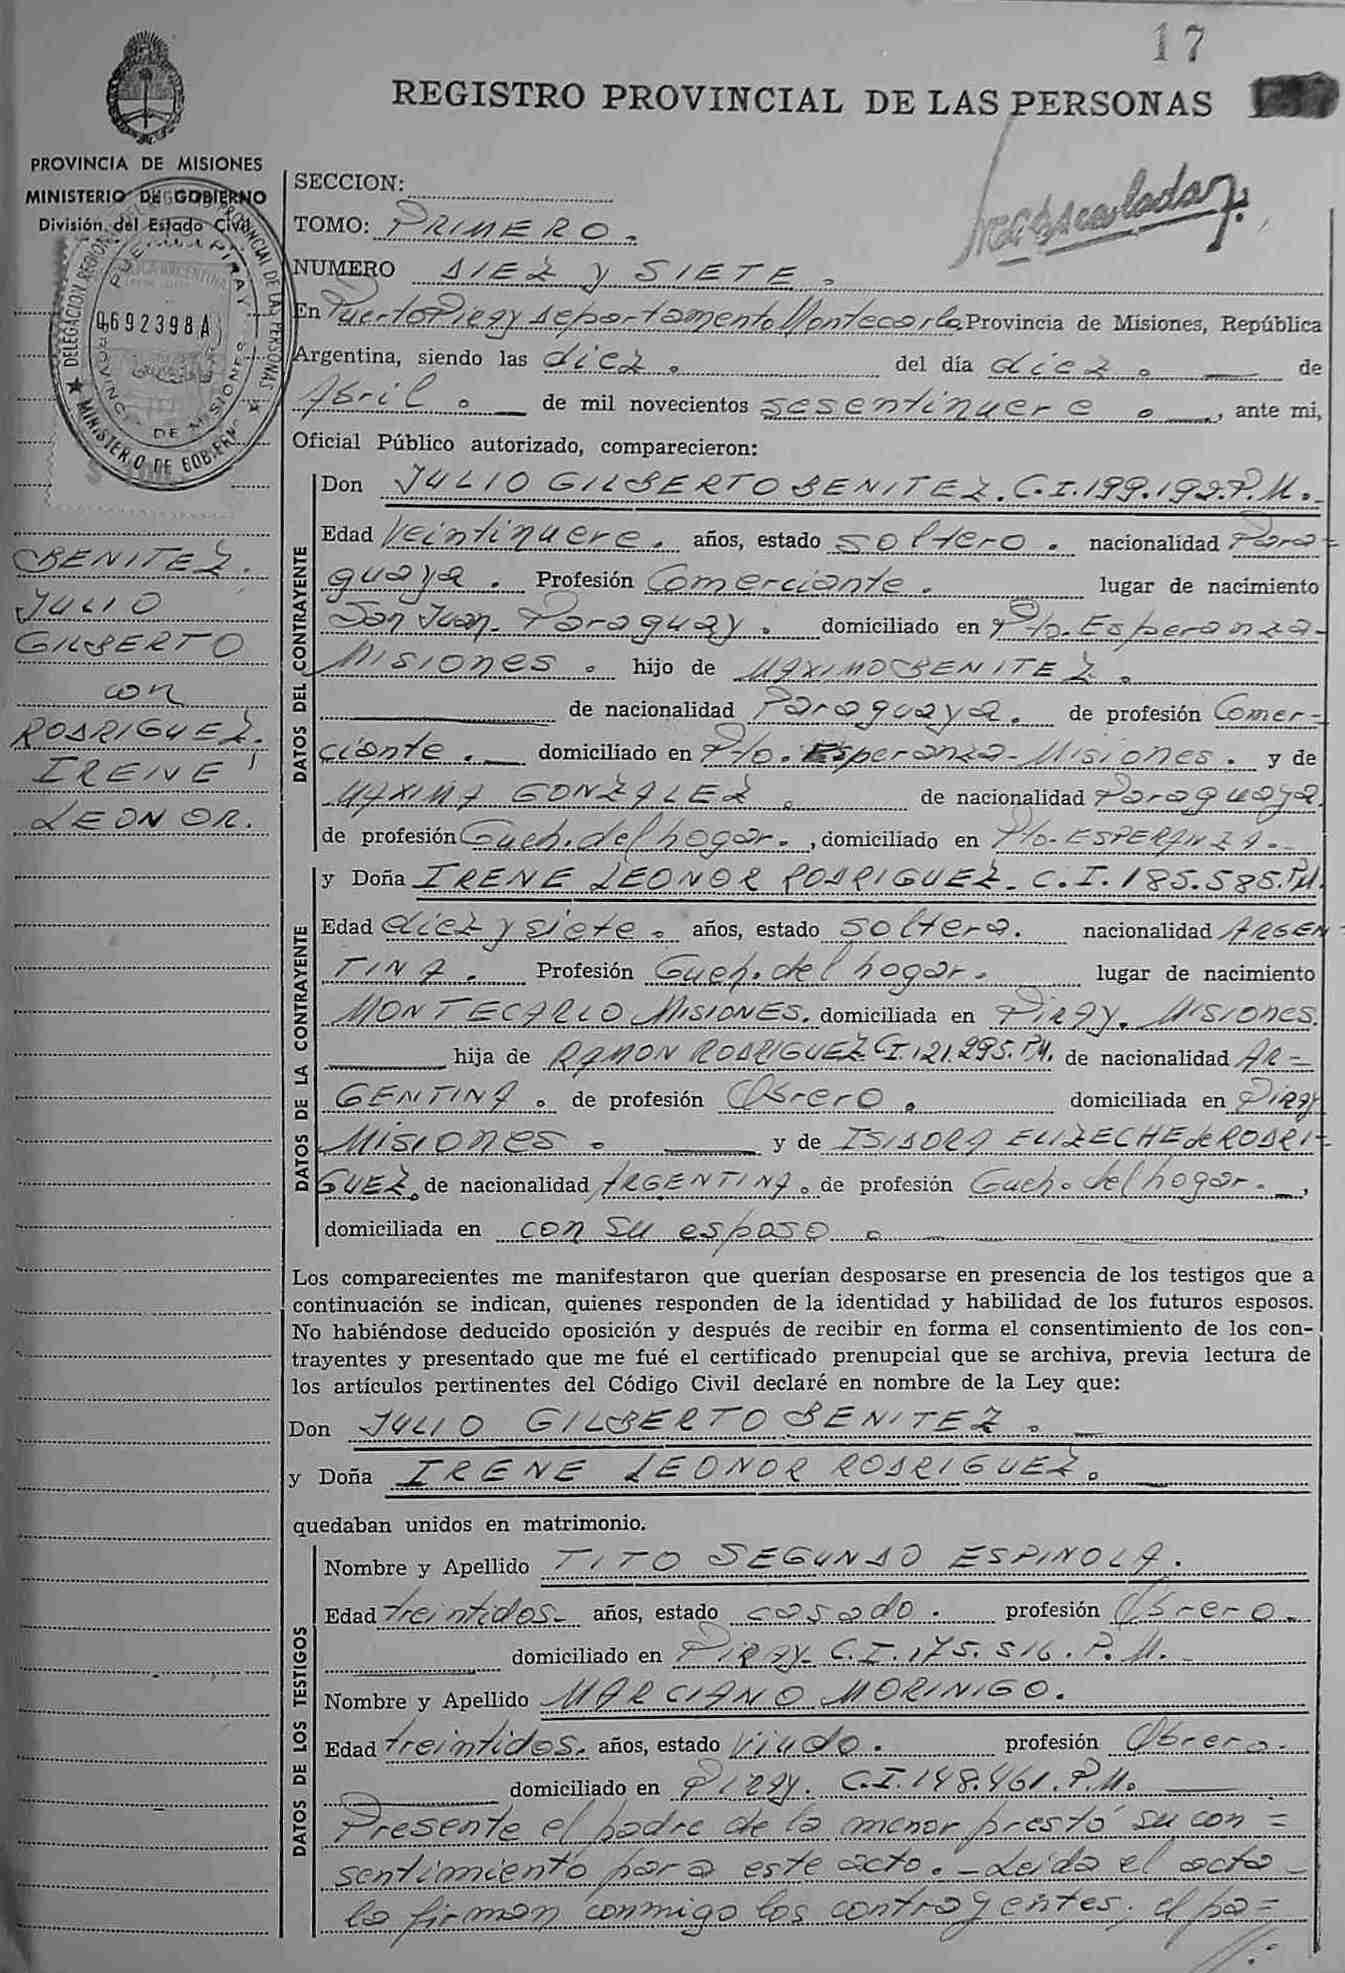 17
REGISTRO PROVINCIAL DE LAS PERSONAS
PROVINCIA DE MISIONES
MINISTERIO DE GOBIERNO
División del Estado Civil
4692398A
BENITEZ.
JULIO
GILBERTO
con
RODRIGUEZ.
IRENE
LEONOR.
SECCION:
TOMO: PRIMERO.
NUMERO DIEZ y SIETE.
En Puerto Piray departamento Montecarlo Provincia de Misiones, República
Argentina, siendo las diez. del día diez. de
Abril. de mil novecientos sesentinueve., ante mi,
Oficial Público autorizado, comparecieron:
DATOS DEL CONTRAYENTE
Don JULIO GILBERTO BENITEZ. C.I.199.199.P.M.
Edad Veintinueve. años, estado soltero. nacionalidad Para=
guaya. Profesión Comerciante. lugar de nacimiento
San Juan- Paraguay. domiciliado en Pto. Esperanza-
Misiones. hijo de MAXIMO BENITEZ.
de nacionalidad Paraguaya. de profesión Comer=
ciante. domiciliado en Pto. Esperanza-Misiones. y de
MAXIMA GONZALEZ. de nacionalidad Paraguaya.
de profesión Queh. del hogar., domiciliado en Pto- ESPERANZA.
DATOS DE LA CONTRAYENTE
y Doña IRENE LEONOR RODRIGUEZ- C.I. 185.585.P.M.
Edad diez y siete. años, estado soltera. nacionalidad ARGEN=
TINA. Profesión Queh. del hogar. lugar de nacimiento
MONTECARLO MISIONES. domiciliada en PIRAY. Misiones.
hija de RAMON RODRIGUEZ C.I.121.295.P.M. de nacionalidad AR=
GENTINA. de profesión Obrero. domiciliada en PIRAY
Misiones. y de ISIDORA ELIZECHE de RODRI=
GUEZ. de nacionalidad ARGENTINA. de profesión Queh. del hogar.,
domiciliada en con su esposo.
Los comparecientes me manifestaron que querían desposarse en presencia de los testigos que a
continuación se indican, quienes responden de la identidad y habilidad de los futuros esposos.
No habiéndose deducido oposición y después de recibir en forma el consentimiento de los con-
trayentes y presentado que me fué el certificado prenupcial que se archiva, previa lectura de
los artículos pertinentes del Código Civil declaré en nombre de la Ley que:
Don JULIO GILBERTO BENITEZ.
y Doña IRENE LEONOR RODRIGUEZ.
quedaban unidos en matrimonio.
DATOS DE LOS TESTIGOS
Nombre y Apellido TITO SEGUNDO ESPINOLA.
Edad treintidos- años, estado casado. profesión Obrero.
domiciliado en PIRAY- C.I.175.516.P.M.
Nombre y Apellido MARCIANO MORINIGO.
Edad treintidos. años, estado Viudo. profesión Obrero.
domiciliado en PIRAY. C.I.148.461.P.M.
Presente el padre de la menor prestó su con=
sentimiento para este acto.-Leida el acta
la firman conmigo los contrayentes, el pa=
//.